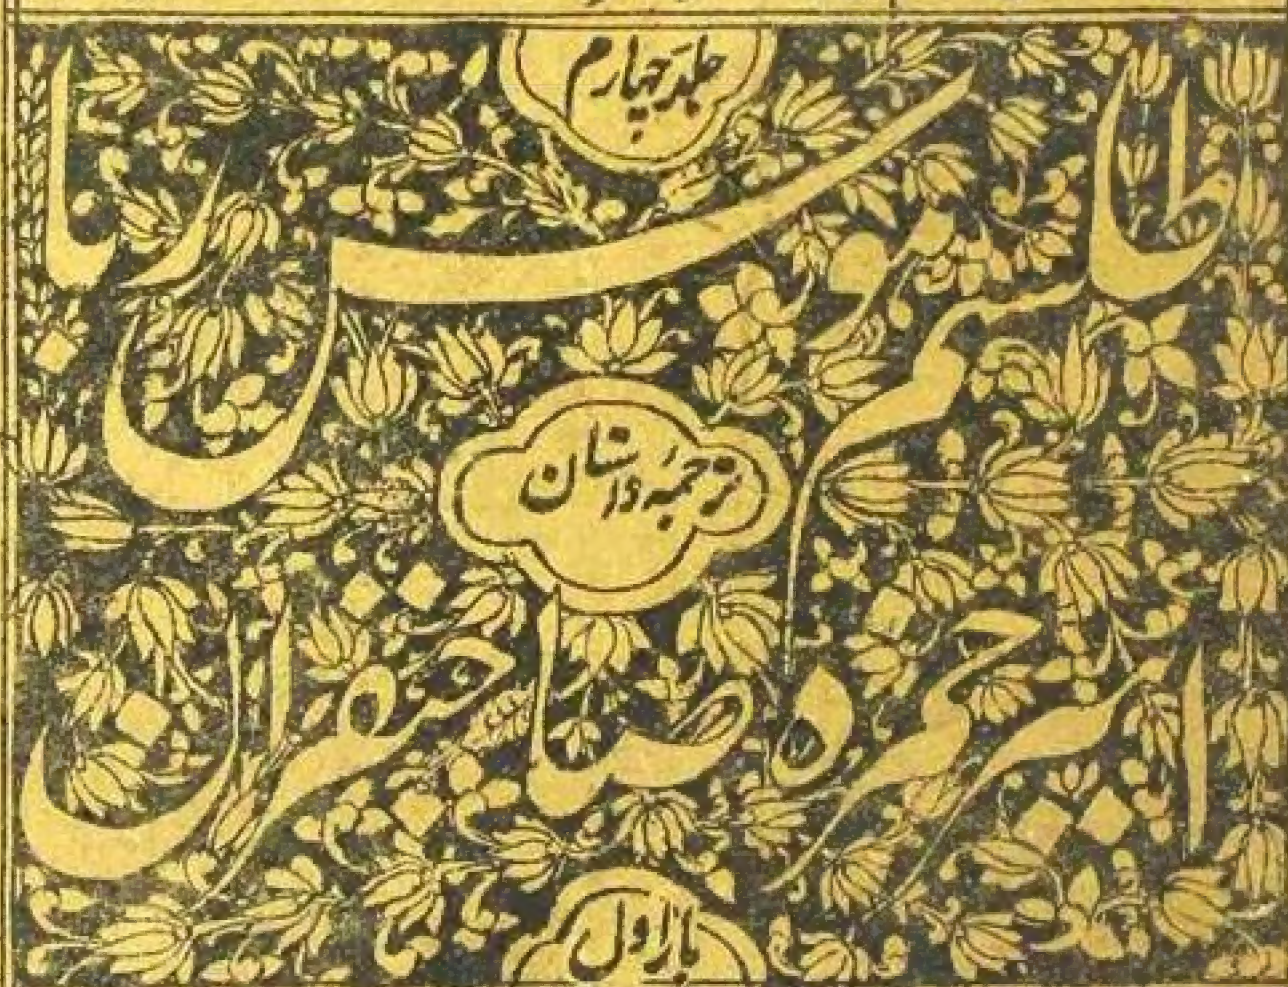 جلد چہارم
طلسم ہوش ربا
ترجمۂ داستان
امیر حمزہ صاحبقران
بار اول